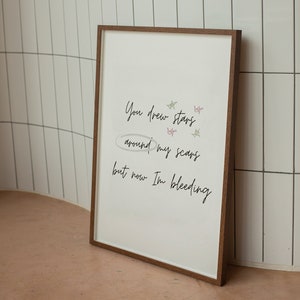 You drew stars
around my scars
but now Im bleeding